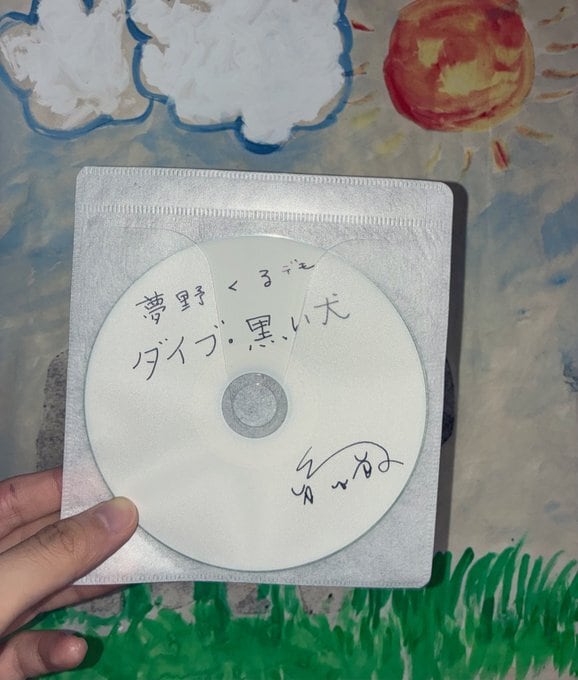 夢野くるデモ
ダイブ・黒い犬